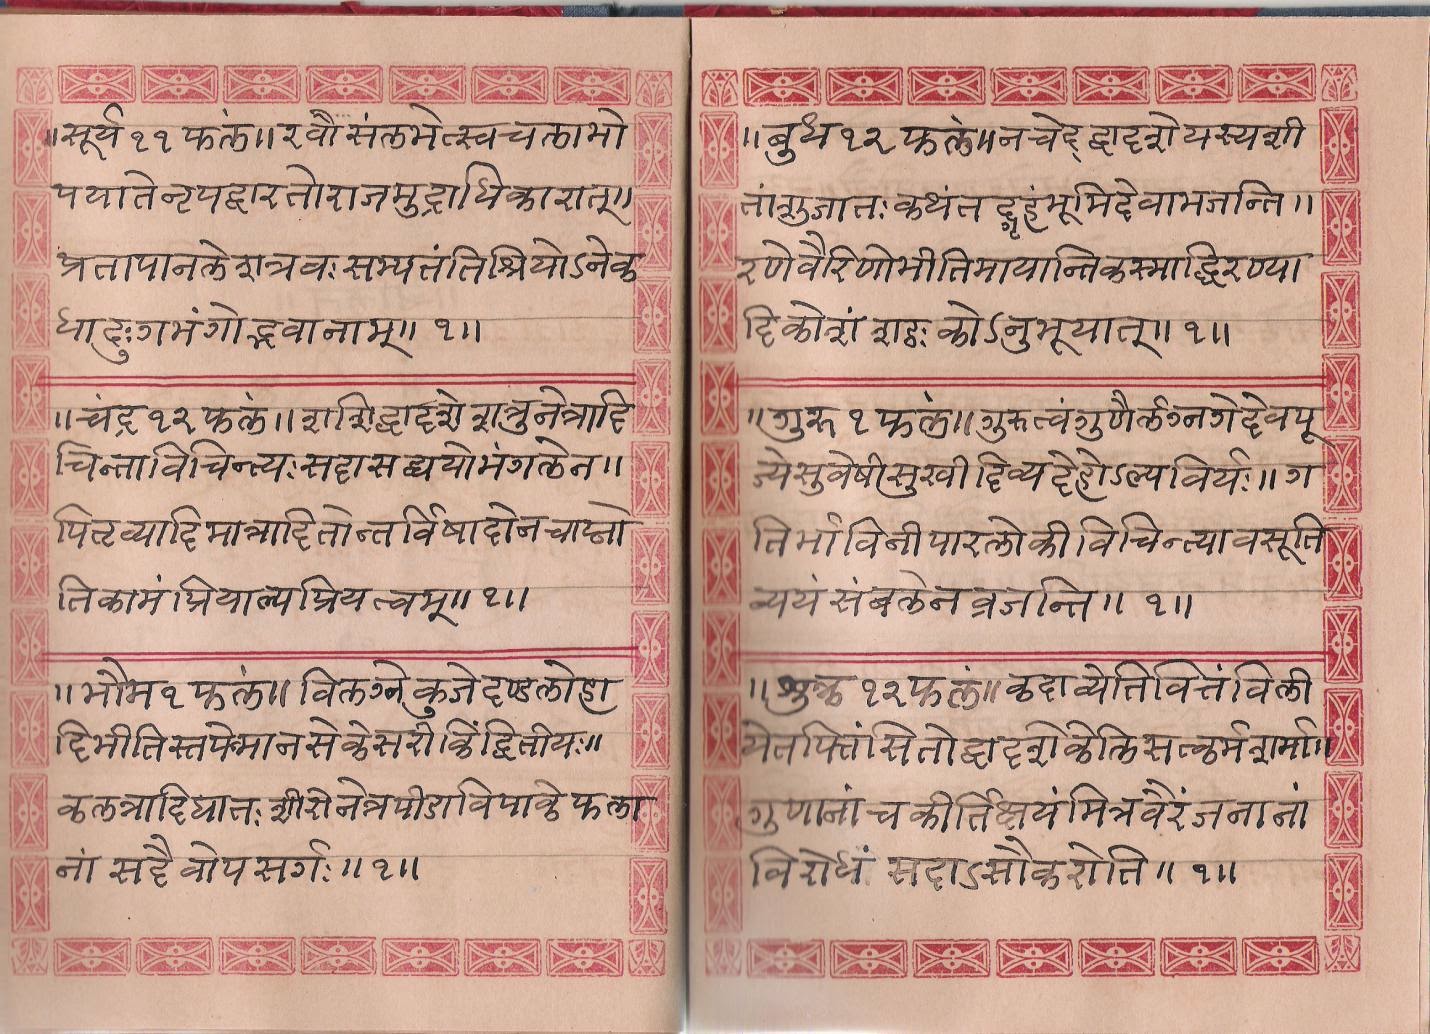 ॥ सूर्य ११ फलं ॥ रवौ संलभेत्स्वचलाभो
पयातेनृपद्वारतो राजमुद्राधिकारात् ॥
प्रतापानले शत्रवः सम्पतंतिश्रियोऽनेक
धादुःगमंगोद्भवानाम् ॥ १॥
॥ चंद्र १२ फलं ॥ शशिद्वादशे शत्रुनेत्रादि
चिन्ताविचिन्त्यः सदासद्व्ययोमंगलेन ॥
पितृव्यादिमात्रादितोन्तर्विषादोनचाप्नो
तिकामंप्रियाल्पप्रियत्वम् ॥ १॥
॥ भौम १ फलं ॥ विलग्ने कुजे दण्डलोहा
दिभीतिस्तपेन्मानसेकेसरी किंद्वितीयः ॥
कलत्रादिघातः शीरोनेत्रपीडाविपाके फला
नां सदैवोपसर्गः ॥ १॥
॥ बुध १२ फलं ॥ नचेद्द्वादशेयस्यशी
तांशुजातः कथंतद्गृहंभूमिदेवाभजन्ति ॥
रणेवैरिणोभीतिमायान्तिकस्माद्धिरण्या
दिकोशं शठः कोऽनुभूयात् ॥ १॥
॥ गुरु १ फलं ॥ गुरुत्वंगुणैर्लग्नगेदेवपू
ज्येसुवेषीसुखीदिव्यदेहोऽल्पविर्यः ॥ ग
तिर्भाविनीपारलोकीविचिन्त्यावसूति
व्ययंसंबलेनव्रजन्ति ॥ १॥
॥ शुक्र १२ फलं ॥ कदाव्येतिवित्तंविली
येतपित्तंसितोद्वादशेकेलिसत्कर्मशर्मा ॥
गुणानांच कीर्तिक्षयंमित्रवैरंजनानां
विरोधं सदाऽसौकरोति ॥ १॥